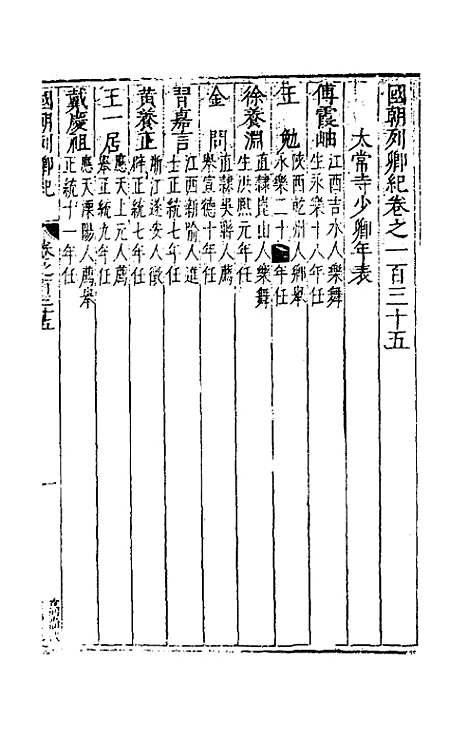 國朝列卿紀卷之一百三十五
太常寺少卿年表
傅霞岫 江西吉水人樂舞
生永樂十八年任
王 勉 陝西乾州人鄉舉
永樂二十 年任
徐養淵 直隸崑山人樂舞
生洪熙元年任
金 問 直隸吳縣人薦
舉宣德十年任
胥嘉言 江西新喻人進
士正統七年任
黄養正 浙江遂安人徵
辟正統七年任
王一居 應天上元人薦
舉正統九年任
戴慶祖 應天溧陽人薦舉
正統十一年任
國朝列卿紀 卷之百三十五 一